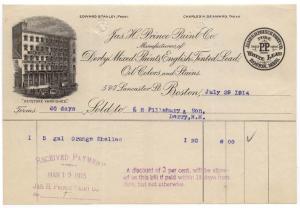 EDWARD STANLEY, PREST. CHARLES H. DENNARD, TREAS.
Jas. H. Prince Paint Co.
Manufacturers of
Derby Mixed Paint, English Tinted Lead,
Oil Colors and Stains.
Lancaster St. Boston, July 29 1914
Terms 60 days Sold to E S Pillsbury & Son,
Derry, N.H.
1 5 gal Orange Shellac 1 20 6 00
RECEIVED PAYMENT
MAR 19 1915
JAS H. PRINCE PAINT CO
A discount of 2 per cent. will be allowed
on this bill if paid within 15 days from
date, but not otherwise.
PP
WHITE LEAD